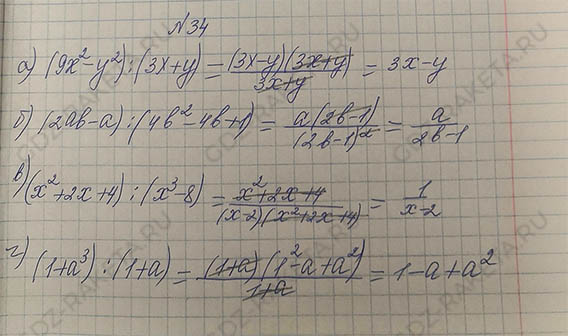 №34
а) (9x²-y²):(3x+y)=(3x-y)(3x+y)/3x+y=3x-y
б) (2ab-a):(4b²-4b+1)=a(2b-1)/(2b-1)²=a/2b-1
в) (x²+2x+4):(x³-8)=x²+2x+4/(x-2)(x²+2x+4)=1/x-2
г) (1+a³):(1+a)=(1+a)(1²-a+a²)/1+a=1-a+a²
GDZ-RAKETA.RU